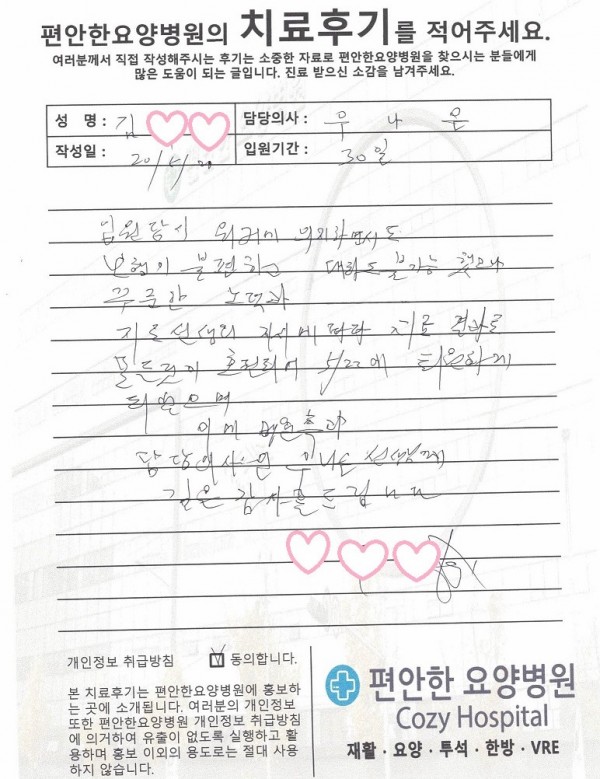 편안한요양병원의 치료후기를 적어주세요.
여러분께서 직접 작성해주시는 후기는 소중한 자료로 편안한요양병원을 찾으시는 분들에게
많은 도움이 되는 글입니다. 진료 받으신 소감을 남겨주세요.
성 명 : 김
담당의사 : 우 나 운
작성일 :
입원기간 : 30일
입원당시 워커에 의지하면서도
보행이 불편하고 대화도 불가능 했으나
꾸준한 노력과
치료선생의 자세에 따라 치료 결과로
모든것이 호전되어 5/22에 퇴원하게
되었으며
이에 병원측과
담당의사 우나운 선생께
깊은 감사를 드립니다
개인정보 취급방침 동의합니다.
본 치료후기는 편안한요양병원에 홍보하
는 곳에 소개됩니다. 여러분의 개인정보
또한 편안한요양병원 개인정보 취급방침
에 의거하여 유출이 없도록 실행하고 활
용하며 홍보 이외의 용도로는 절대 사용
하지 않습니다.
편안한 요양병원
Cozy Hospital
재활 · 요양 · 투석 · 한방 · VRE